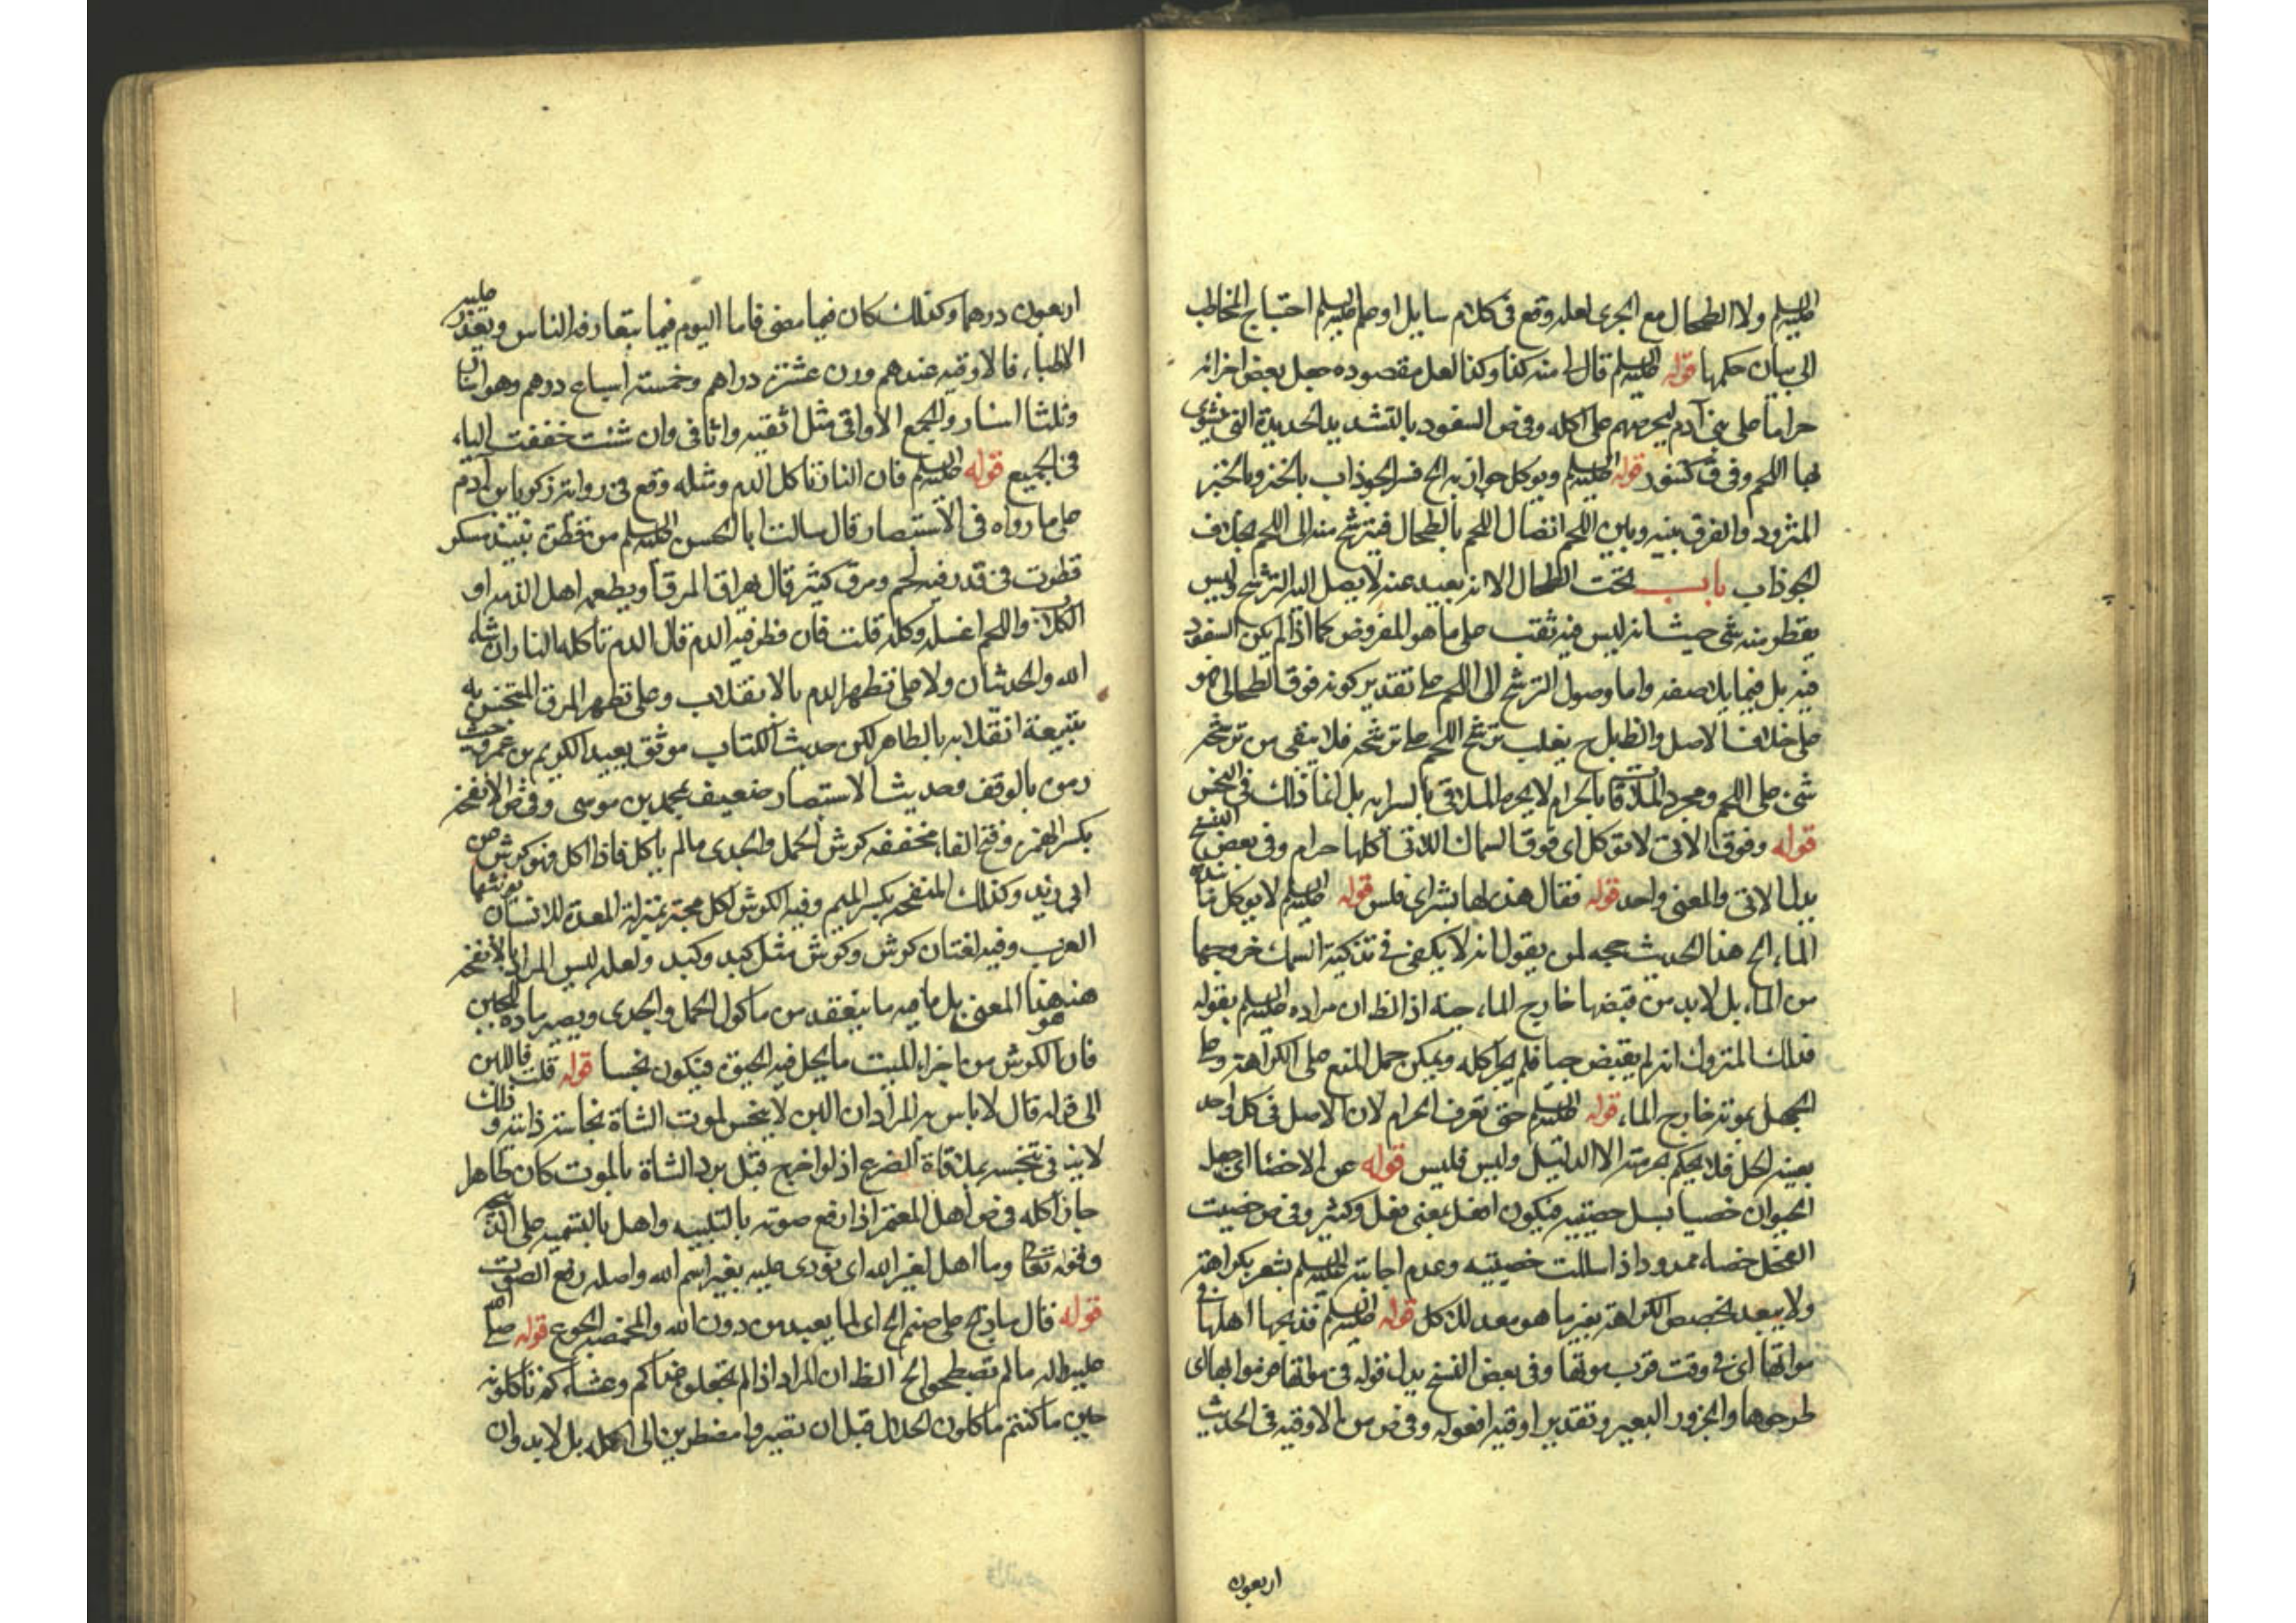 عليه السلم ولا الطحال مع الجرى لعله وقع في كلام سايل او علم عليه السلم احتياج المخاطب
الى بيان حكمها قوله عليه السلم قال منه كفا وكفا لعل مقصوده جعل بعض اجزائه
حراما على بنى آدم ليحرمهم على اكله وفى ص السفود بالتشديد الحديدة التى يشوى
بها اللحم وفى ق كتنور قوله عليه السلم ويوكل جوازبه الخ فسر الجوذاب بالخبز وبالخبز
المثرود والفرق بينه وبين اللحم اتصال اللحم بالطحال فيترشح منه الى اللحم بخلاف
الجوذاب باب تحت الطحال الا انه بعيد عنه لا يصل اليه الترشح وليس
يقطر منه شى حيث انه ليس فيه ثقب على ما هو المفروض كما اذا لم يكن السفود
فيه بل فيما يلاصقه واما وصول الترشح الى اللحم على تقدير كونه فوق الطحال فهو
على خلاف الاصل والظ بل ح يغلب ترشح اللحم على ترشحه فلا يبقى من ترشحه
شى على اللحم ومجرد الملاقاة بالحرام لا يحرم الملاقى بالسراية بل انما ذلك فى النجس
قوله وفوق الاتى لا تؤكل اى فوق السماك اللاتى اكلها حرام وفى بعض النسخ
بدل الاتى والمعنى واحد قوله فقال هذه لها بشراى فلس قوله عليه السلم لا يوكل ما نبذه
الماء الخ هذا الحديث حجه لمن يقول انه لا يكفى فى تذكية السمك خروجها
من الماء بل لا بد من قبضها خارج الماء حية اذ الظ ان مراده عليه السلم بقوله
فذلك المتروك انه لم يقبض حيا فلم يجز اكله ويمكن حمل المنع على الكراهة وعلى
الجهل بموته خارج الماء قوله عليه السلم حتى تعرف الحرام لان الاصل فى كل واحد
بعينه الحل فلا يحكم بحرمته الا الدليل وليس فليس قوله عن الاخصا اى جعل
الحيوان خصيا بسل خصيتيه فيكون افعل بمعنى فعل وكثير وفى ص خصيت
الفحل خصاء ممدود اذا سللت خصيتيه وعدم اجابته عليه السلم يشعر بكراهته
ولا يبعد تخصيص الكراهة بغير ما هو معد للاكل قوله عليه السلم فذبحها اهلها فى
مواتها اى فى وقت قرب موتها وفى بعض النسخ بدل قوله فى موتها فرموا بها اى
طرحوها والجزور البعير وتقدير اوقيه افعوله وفى ص من الاوقيه فى الحديث
اربعون
اربعون درهما وكذلك كان فيما مضى فاما اليوم فيما يتعارفه الناس ويقدر عليه
الاطباء فالاوقيه عندهم وزن عشرة دراهم وخمسة اسباع درهم وهو استار
وثلثا استار والجمع الاواقى مثل اثفيه واثافى وان شئت خففت الياء
فى الجميع قوله عليه السلم فان النار تاكل الدم ومثله وقع فى رواية زكريا بن آدم
على ما رواه فى الاستبصار قال سالت ابا الحسن عليه السلم من قطرة نبيذ مسكر
قطرت فى قدر فيه لحم ومرق كثير قال يهراق المرق او يطعمه اهل الذمه او
الكلاب واللحم اغسله وكله قلت فان قطر فيه الدم قال الدم تاكله النار ان شاء
الله والحديثان ولا على تطهر الدم بالانقلاب وعلى تطهر المرق المتنجس به
بتبعية انقلابه بالطاهر لكن حديث الكتاب موثق بعبد الكريم بن عمرو حيث
رمى بالوقف وحديث الاستبصار ضعيف بمحمد بن موسى وفى ص الانفحه
بكسر الهمزه وفتح الفاء مخففه كرش الحمل والجدى مالم ياكل فاذا اكل فهو كرش عن
ابى زيد وكذلك المنفحه بكسر الميم وفيه الكرش لكل مجتر بمنزلة المعدة للانسان تؤنثها
العرب وفيه لغتان كرش وكرش مثل كبد وكبد ولعله ليس المراد بالانفحه
هنا هذا المعنى بل ما هو ما ينعقد من ماكول الحمل والجدى ويصير مادة للجبن
فان الكرش من اجزاء الميت ما يحل فيه الحيوة فيكون نجسا قوله قلت فاللبن
الى قوله قال لا باس به المراد ان اللبن لا ينجس لموت الشاة نجاسة ذاتية وذلك
لا ينفى تنجسه بملاقاة الضرع اذ لو اخرج قبل برد الشاة بالموت كان طاهرا
جاز اكله فى ص اهل المعتمر اذا رفع صوته بالتلبيه واهل بالتسميه على الذبيحه
وقوله تعالى وما اهل لغير الله اى نودى عليه بغير اسم الله واصله رفع الصوت
قوله قال ما ذبح على صنم الخ اى لما يعبد من دون الله والمخمصه الجوع قوله صلى الله
عليه واله مالم تصطبحوا الخ الظ ان المراد اذا لم تجعلوه غداكم وعشاءكم تاكلونه
حين ما كنتم تاكلون الحلال قبل ان تصيروا مضطرين الى اكله بل لا بد وان